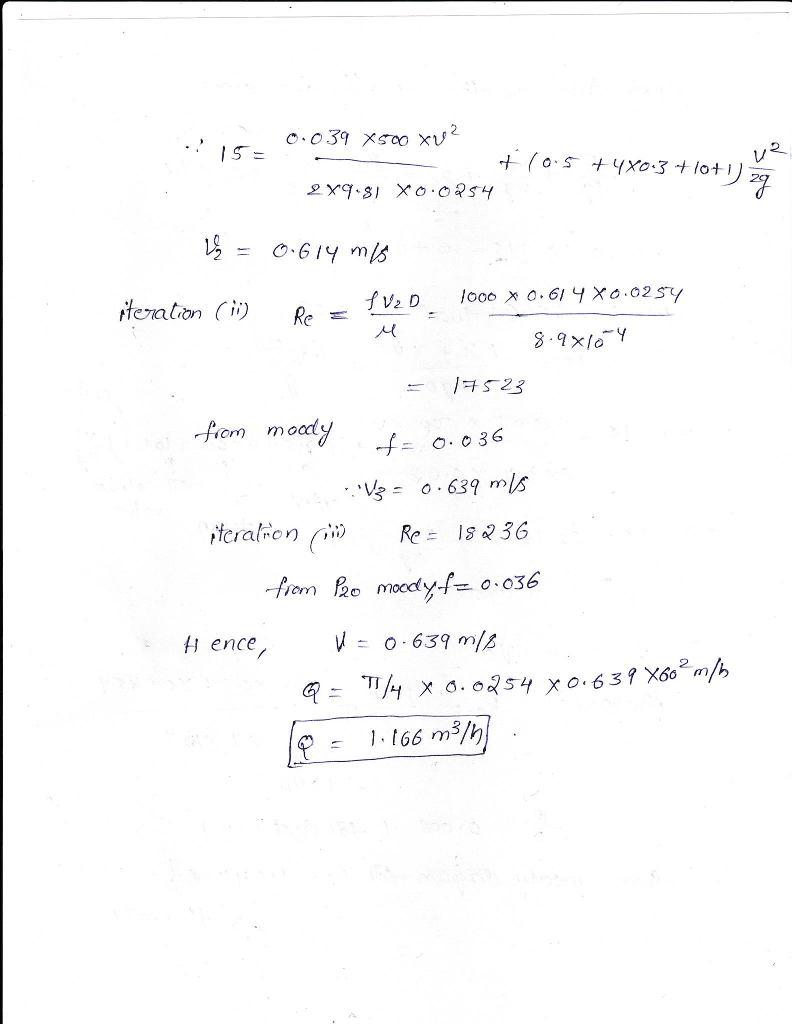 ∵ 15 = 0.039 × 500 × V² / 2×9.81 × 0.0254 + (0.5 + 4×0.3 + 10+1) V²/2g
V₂ = 0.614 m/s
iteration (ii) Re = ρV₂D/μ = 1000 × 0.614 × 0.0254 / 8.9×10⁻⁴
= 17523
from moody f = 0.036
∴ V₃ = 0.639 m/s
iteration (iii) Re = 18236
from P20 moody, f = 0.036
Hence, V = 0.639 m/s
Q = π/4 × 0.0254 × 0.639 × 60² m/h
Q = 1.166 m³/h